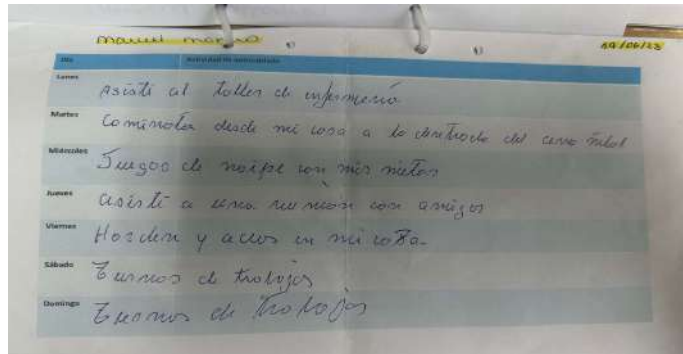 Manuel
04/06/23
Día Actividad de autocuidado
Lunes Asistí al taller de enfermería
Martes Caminata desde mi casa a la del cerro
Miércoles Juegos de naipe con mis nietos
Jueves asistí a una reunión con amigos
Viernes Horden y aceos en mi casa.
Sábado Turnos de trabajos
Domingo Turnos de trabajos